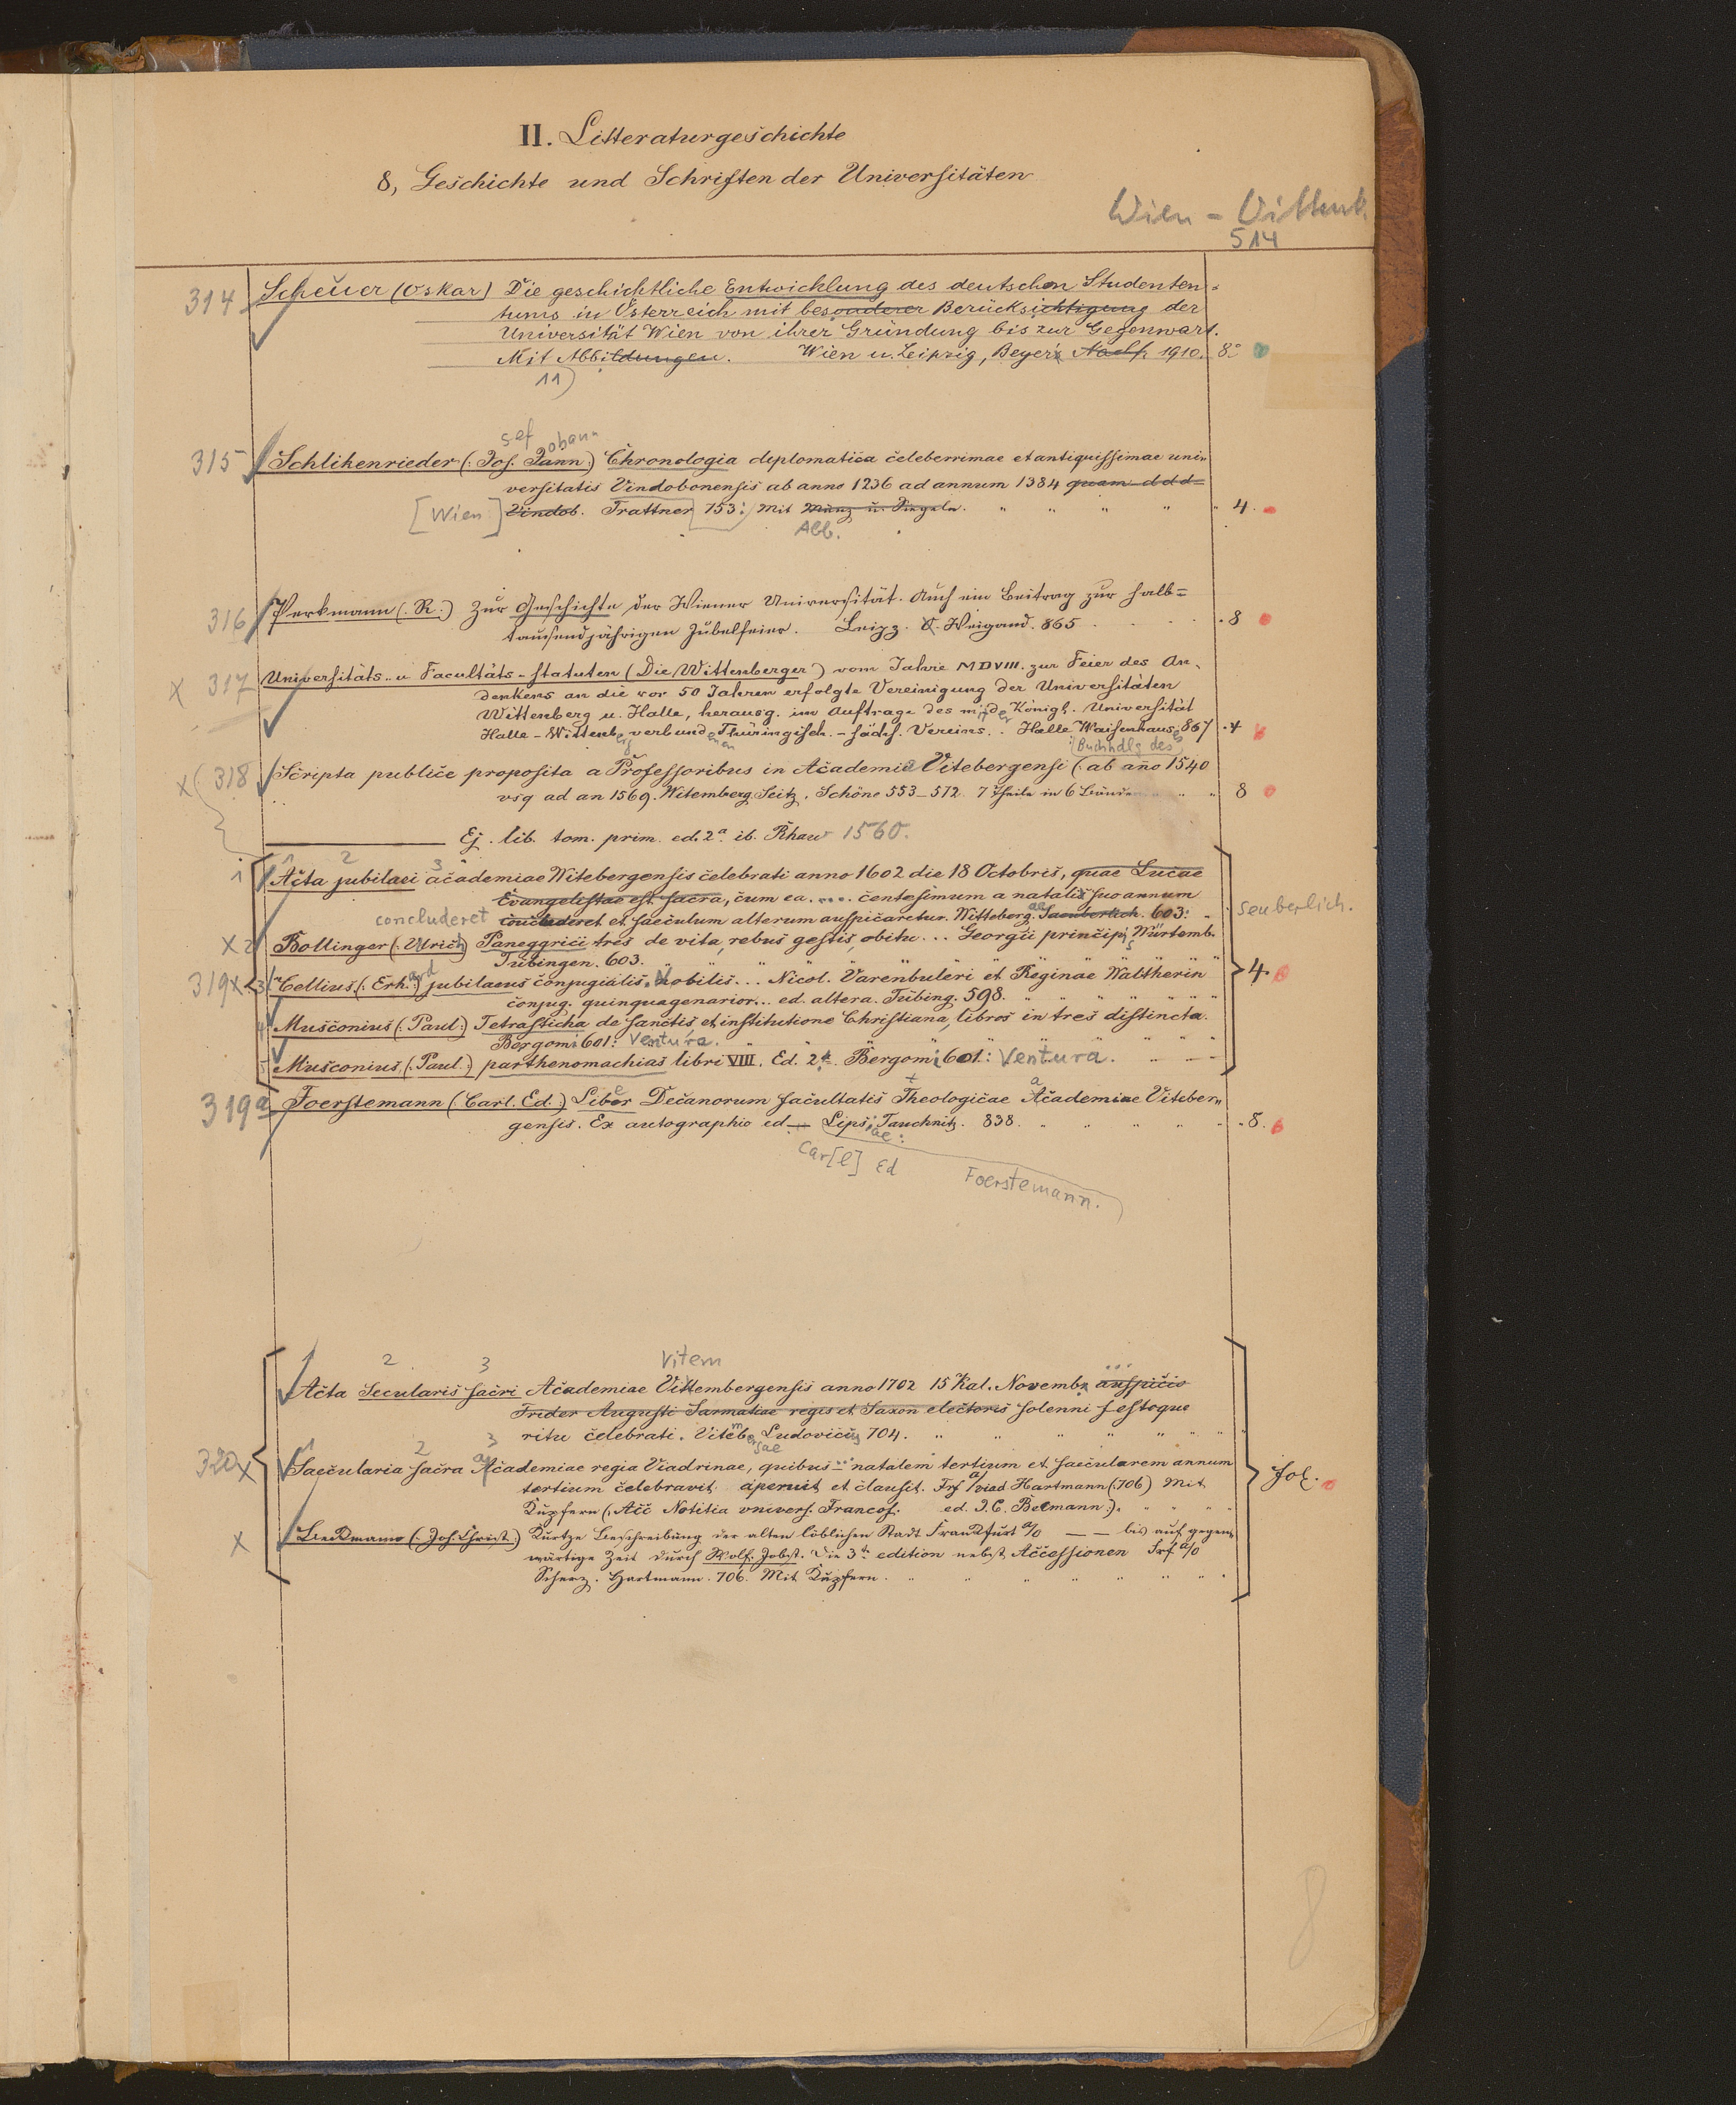 II. Litteraturgeschichte
8, Geschichte und Schriften der Universitäten
Wien - Vittenb.
514
314 Scheuer (Oskar) Die geschichtliche Entwicklung des deutschen Studenten=
tums in Österreich mit besonderer Berücksichtigung der
Universität Wien von ihrer Gründung bis zur Gegenwart.
Mit Abbildungen. Wien u. Leipzig, Beyer's Nachf. 1910. 8°
11)
sef ohann
315 Schlikenrieder (: Jos. Jann:) Chronologia deplomatica celeberrimae et antiquissimae uni=
versitatis Vindobonensis ab anno 1236 ad annum 1384 quam d d d =
[Wien] Vindob. Trattner 753: Mit Münz u. Siegeln. 4.
Abb.
316 Perkmann (. R.:) Zur Geschichte der Wiener Universität. Auch ein Beitrag zur halb=
tausendjährigen Jubelfeier. Leipz. O. Weigand. 865 . 8
x 317 Universitäts- u Facultäts-Statuten (Die Wittenberger) vom Jahre MDVIII. zur Feier des An-
denkens an die vor 50 Jahren erfolgte Vereinigung der Universitäten
Wittenberg u. Halle, herausg. im Auftrage des mit der Königl. Universität
Halle-Wittenberg verbundenen Thüringisch.-sächs. Vereins. Halle Waisenhauses 867 . 4
(Buchhdlg des)
x 318 Scripta publice proposita a Professoribus in Academia Vitebergensi (: ab año 1540
vsq ad an 1569. Witemberg Seitz. Schöne 553-572 7 Theile in 6 Bänden 8
Ej. lib. tom. prim. ed. 2a. ib. Rhaw 1560.
1 2 3
1 Acta jubilaei academiae Witebergensis celebrati anno 1602 die 18 Octobris, quae Lucae
Evangelistae est sacra, cum ea .... centesimum a natalis suo annum
concluderet concluderet et saeculum alterum auspicaretur. Witteberg.ae Saeuberlich. 603: Seuberlich.
x 2 Bollinger (: Ulrich) Paneggrici tres de vita, rebus gestis, obitu ... Georgii principis Würtemb.
Tubingen. 603.
319 x 3 Cellius (: Erhard) jubilaeus conjugialis. Nobilis ... Nicol. Varenbuleri et Reginae Waltherin 4.
conjug. quinquagenarior... ed. altera. Tübing. 598.
4 Musconius (: Paul:) Tetrasticha de sanctis, et institutione Christiana, libros in tres distincta.
Bergomi 601: Ventura.
5 Musconius (: Paul.:) parthenomachias libri VIII. Ed. 2a. Bergomi 601: Ventura.
319a Foerstemann (: Carl. Ed.:) Liber Decanorum facultatis Theologicae Academiae Viteber=
gensis. Ex autographio ed — Lipsiae: Tauchnitz. 838. 8.
Car[l] Ed Foerstemann.
1 2 3 Vitem
Acta Secularis sacri Academiae Vittembergensis anno 1702 15 Kal. Novembr. auspicio
Frider Augusti Sarmatiae regis et Saxon electoris solenni festoque
ritu celebrati. Vitembergae Ludovicus 704.
1 2 3
320 x Saecularia sacra Academiae regia Viadrinae, quibus ... natalem tertium et saecularem annum fol.
tertium celebravit aperuit et clausit. Frf a/viad Hartmann (: 706) Mit
Kupfern (: Acc Notitia vnivers. Francof. ed. J. C. Becmann:).
x Beckmann (: Joh. Christ.:) Kurtze Beschreibung der alten löblichen Stadt Franckfurt a/o — — bis auf gegen=
wärtige Zeit durch Wolf. Jobst. Die 3te edition nebst Accessionen Frf a/o
Scherz. Hartmann. 706. Mit Kupfern.
8